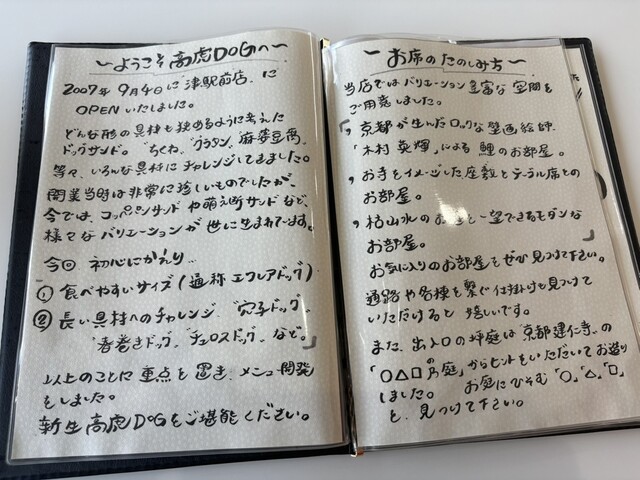 〜ようこそ高虎DOGへ〜
2007年9月4日に津駅前店に
OPENいたしました。
どんな形の具材も狭めるように考えた
ドッグサンド。"ちくわ、グラタン、麻婆豆腐"
等々、いろんな具材にチャレンジしてきました。
開業当時は非常に珍しいものでしたが、
今では、コッペパンサンドや萌え断サンドなど、
様々なバリエーションが世に生まれています。
今回 初心にかえり
① 食べやすいサイズ(通称 エクレアドッグ)
② 長い具材へのチャレンジ "穴子ドッグ"
"春巻きドッグ" "チュロスドッグ" など。
以上のことに重点を置き、メニュー開発
をしました。
新生高虎DOGをご堪能ください。
〜お席のたのしみ方〜
当店ではバリエーション豊富な空間を
ご用意しました。
京都が生んだロックな壁画絵師
「木村 英輝」による 鯉のお部屋。
お寺をイメージした座敷とテーブル席との
お部屋。
枯山水のお庭を一望できるモダンな
お部屋。
お気に入りのお部屋をぜひ見つけて下さい。
通路や各種を繋ぐ仕掛けも見つけて
いただけると嬉しいです。
また、出入口の坪庭は"京都建仁寺"の
「○△□の乃庭」からヒントをいただいてお造り
しました。 お庭にひそむ「○、△、□」
を、見つけて下さい。